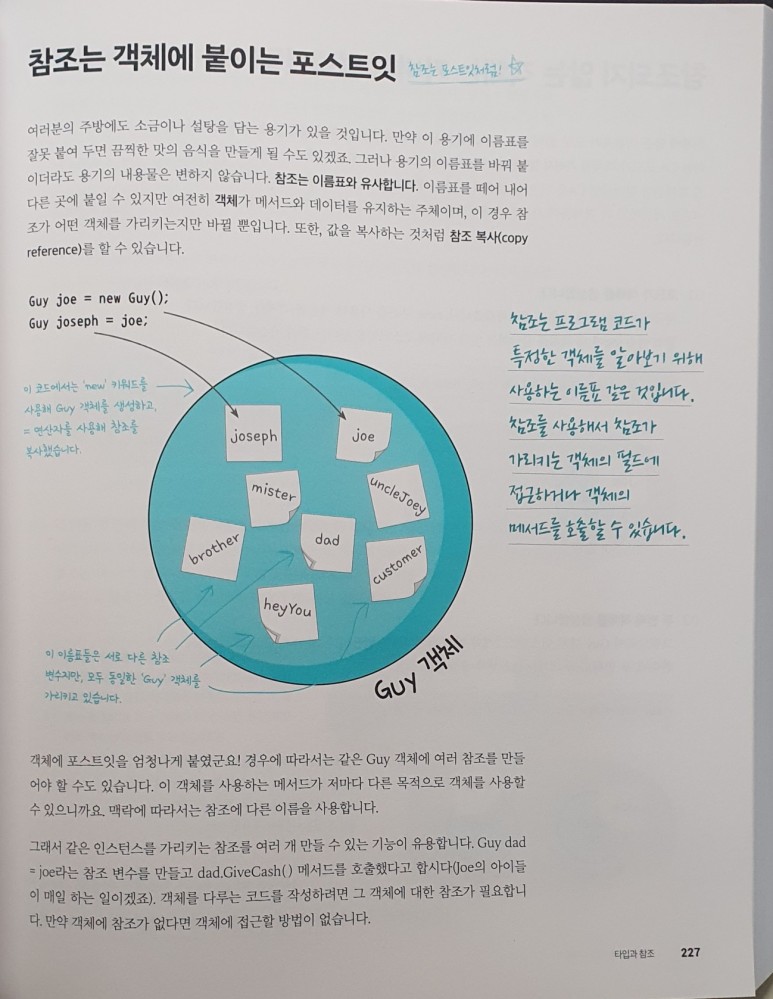 참조는 객체에 붙이는 포스트잇
참조는 포스트잇처럼!
여러분의 주방에도 소금이나 설탕을 담는 용기가 있을 것입니다. 만약 이 용기에 이름표를
잘못 붙여 두면 끔찍한 맛의 음식을 만들게 될 수도 있겠죠. 그러나 용기의 이름표를 바꿔 붙
이더라도 용기의 내용물은 변하지 않습니다. 참조는 이름표와 유사합니다. 이름표를 떼어 내어
다른 곳에 붙일 수 있지만 여전히 객체가 메서드와 데이터를 유지하는 주체이며, 이 경우 참
조가 어떤 객체를 가리키는지만 바뀔 뿐입니다. 또한, 값을 복사하는 것처럼 참조 복사(copy
reference)를 할 수 있습니다.
Guy joe = new Guy();
Guy joseph = joe;
이 코드에서는 'new' 키워드를
사용해 Guy 객체를 생성하고,
= 연산자를 사용해 참조를
복사했습니다.
joseph
joe
mister
uncleJoey
brother
dad
customer
heyYou
Guy 객체
이 이름표들은 서로 다른 참조
변수지만, 모두 동일한 'Guy' 객체를
가리키고 있습니다.
참조는 프로그램 코드가
특정한 객체를 알아보기 위해
사용하는 이름표 같은 것입니다.
참조를 사용해서 참조가
가리키는 객체의 필드에
접근하거나 객체의
메서드를 호출할 수 있습니다.
객체에 포스트잇을 엄청나게 붙였군요! 경우에 따라서는 같은 Guy 객체에 여러 참조를 만들
어야 할 수도 있습니다. 이 객체를 사용하는 메서드가 저마다 다른 목적으로 객체를 사용할
수 있으니까요. 맥락에 따라서는 참조에 다른 이름을 사용합니다.
그래서 같은 인스턴스를 가리키는 참조를 여러 개 만들 수 있는 기능이 유용합니다. Guy dad
= joe라는 참조 변수를 만들고 dad.GiveCash() 메서드를 호출했다고 합시다(Joe의 아이들
이 매일 하는 일이겠죠). 객체를 다루는 코드를 작성하려면 그 객체에 대한 참조가 필요합니
다. 만약 객체에 참조가 없다면 객체에 접근할 방법이 없습니다.
타입과 참조 227